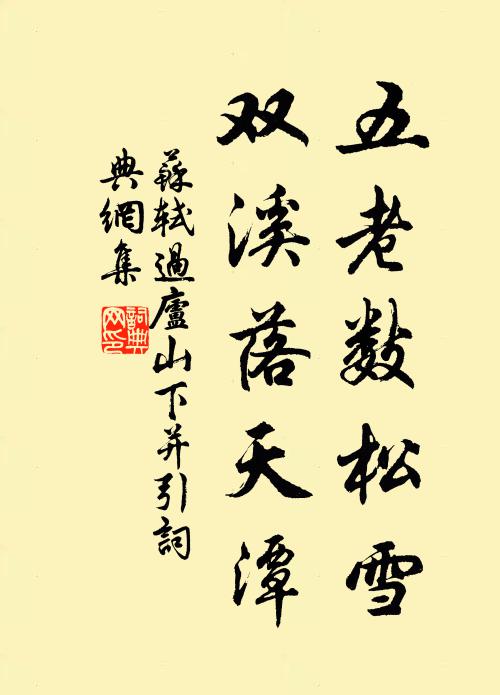 五老数松雪
双溪落天潭
蘇軾過廬山下并引詞
典網集
詞典
网印